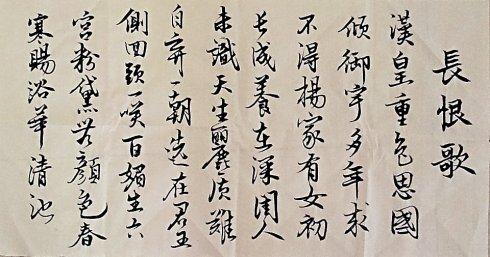 長恨歌
漢皇重色思國
傾御宇多年求
不得楊家有女初
長成養在深閨人
未識天生麗質難
自棄一朝選在君王
側回頭一咲百媚生六
宮粉黛無顏色春
寒賜浴華清池